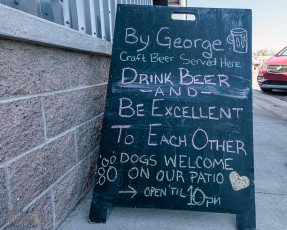 By George
Craft Beer Served Here
Drink Beer
-AND-
Be Excellent
To Each Other
Dogs Welcome
on our Patio
→ open 'til 10pm